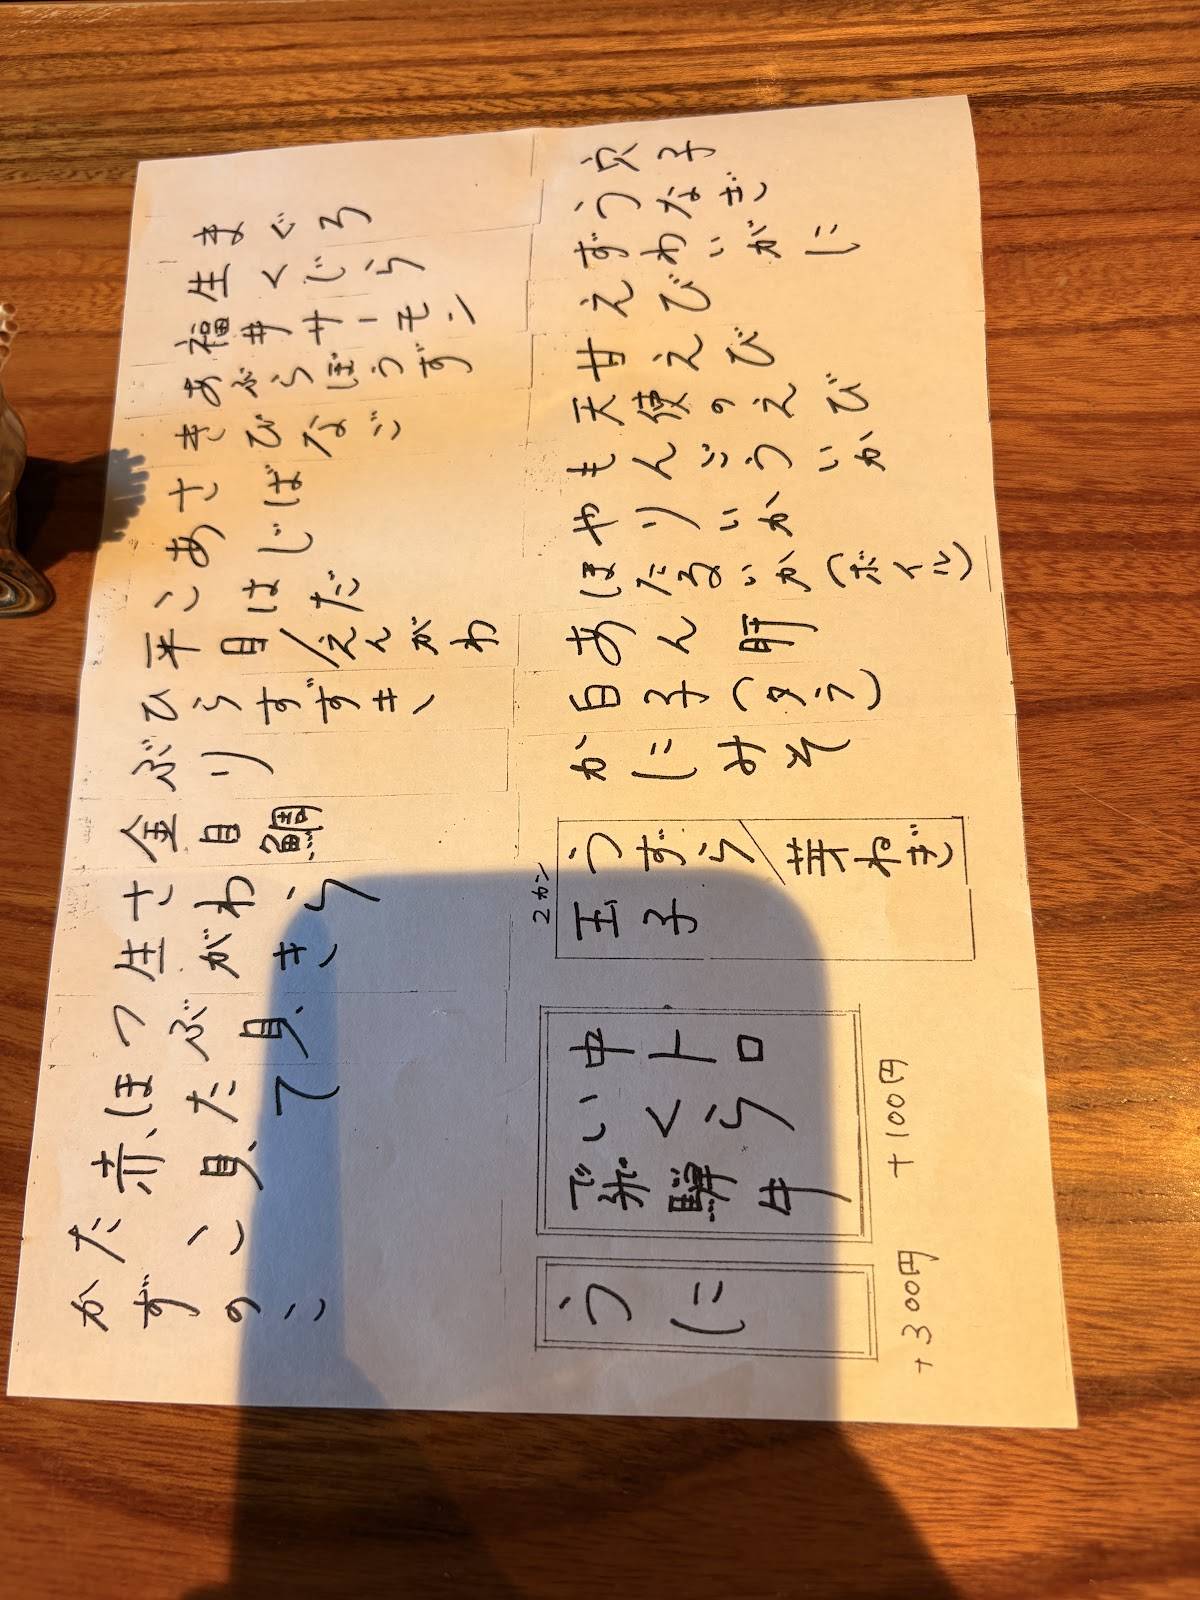 まぐろ
生くじら
福井サーモン
あぶらぼうず
きびなご
さば
あじ
こはだ
平目/えんがわ
ひらすずき
ぶり
金目鯛
さわら
生がき
つぶ貝
ほたて
赤貝
たこ
かずのこ
穴子
うなぎ
ずわいがに
えび
甘えび
天使のえび
もんごういか
やりいか
ほたるいか(ボイル)
あん肝
白子(タラ)
かにみそ
2カン
うずら/芽ねぎ
玉子
中トロ
いくら
飛騨牛
+100円
うに
+300円